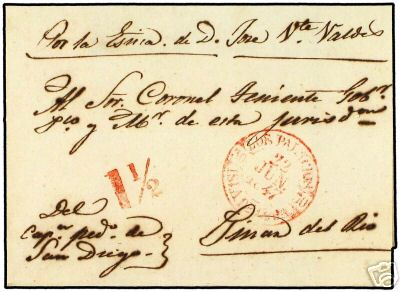 Por la Esna. de D. Jose Vte. Valdes
Al Sor. Coronel Teniente Gobr.
pco. y Mr. de esta jurisdon.
1 1/2
22
JUN
Del
Capn. pedo. de
San Diego
Pinar del Rio